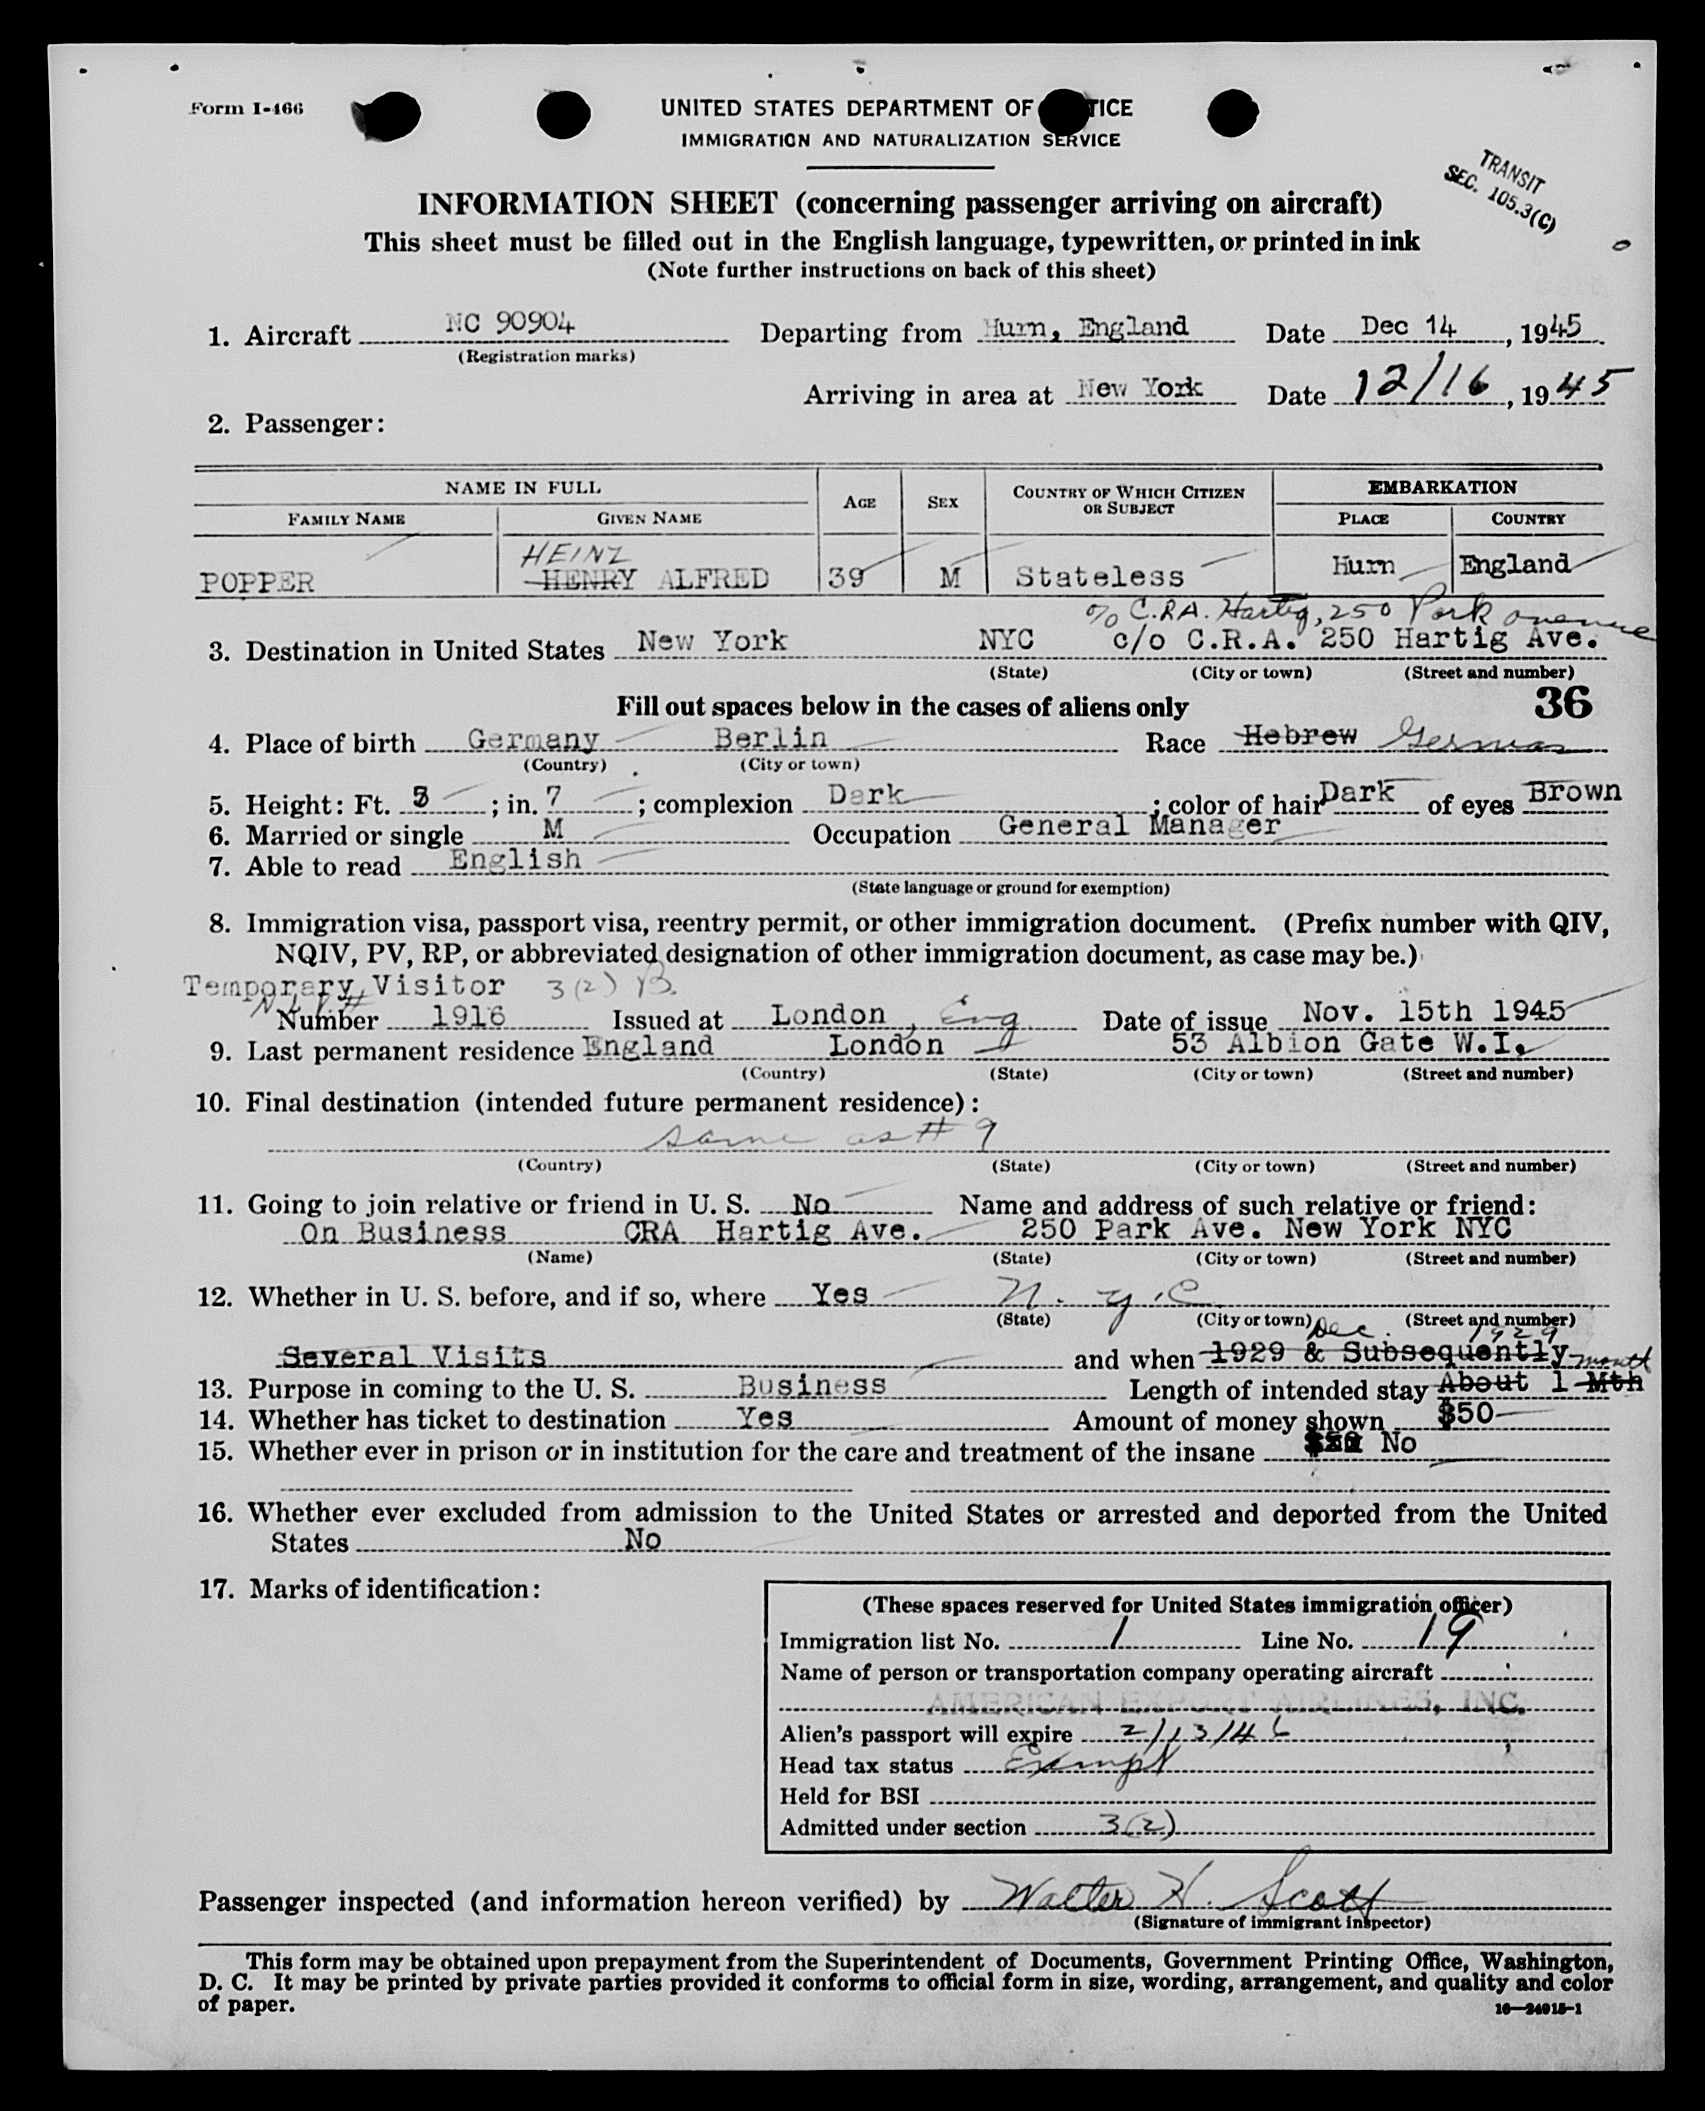 Form I-466
UNITED STATES DEPARTMENT OF TICE
IMMIGRATION AND NATURALIZATION SERVICE
TRANSIT
SEC. 105.3(C)
INFORMATION SHEET (concerning passenger arriving on aircraft)
This sheet must be filled out in the English language, typewritten, or printed in ink
(Note further instructions on back of this sheet)
1. Aircraft NC 90904 Departing from Hurn, England Date Dec 14, 1945
(Registration marks)
Arriving in area at New York Date 12/16, 1945
2. Passenger:
NAME IN FULL AGE SEX COUNTRY OF WHICH CITIZEN OR SUBJECT EMBARKATION
FAMILY NAME GIVEN NAME PLACE COUNTRY
HEINZ
POPPER HENRY ALFRED 39 M Stateless Hurn England
c/o C.R.A. Hartig, 250 Park avenue
3. Destination in United States New York NYC c/o C.R.A. 250 Hartig Ave.
(State) (City or town) (Street and number)
Fill out spaces below in the cases of aliens only 36
4. Place of birth Germany Berlin Race Hebrew German
(Country) (City or town)
5. Height: Ft. 5; in. 7; complexion Dark; color of hair Dark of eyes Brown
6. Married or single M Occupation General Manager
7. Able to read English
(State language or ground for exemption)
8. Immigration visa, passport visa, reentry permit, or other immigration document. (Prefix number with QIV,
NQIV, PV, RP, or abbreviated designation of other immigration document, as case may be.)
Temporary Visitor 3(2) B.
Number 1916 Issued at London, Eng. Date of issue Nov. 15th 1945
9. Last permanent residence England London 53 Albion Gate W.I.
(Country) (State) (City or town) (Street and number)
10. Final destination (intended future permanent residence):
same as # 9
(Country) (State) (City or town) (Street and number)
11. Going to join relative or friend in U. S. No Name and address of such relative or friend:
On Business CRA Hartig Ave. 250 Park Ave. New York NYC
(Name) (State) (City or town) (Street and number)
12. Whether in U. S. before, and if so, where Yes N. Y. C
(State) (City or town) (Street and number)
Dec. 1929
Several Visits and when 1929 & Subsequently
13. Purpose in coming to the U. S. Business Length of intended stay About 1 Mth month
14. Whether has ticket to destination Yes Amount of money shown $50
15. Whether ever in prison or in institution for the care and treatment of the insane No
16. Whether ever excluded from admission to the United States or arrested and deported from the United
States No
17. Marks of identification:
(These spaces reserved for United States immigration officer)
Immigration list No. 1 Line No. 19
Name of person or transportation company operating aircraft
AMERICAN EXPORT AIRLINES, INC.
Alien's passport will expire 2/13/46
Head tax status Exempt
Held for BSI
Admitted under section 3(2)
Passenger inspected (and information hereon verified) by Walter H. Scott
(Signature of immigrant inspector)
This form may be obtained upon prepayment from the Superintendent of Documents, Government Printing Office, Washington,
D. C. It may be printed by private parties provided it conforms to official form in size, wording, arrangement, and quality and color
of paper.
16—24015-1